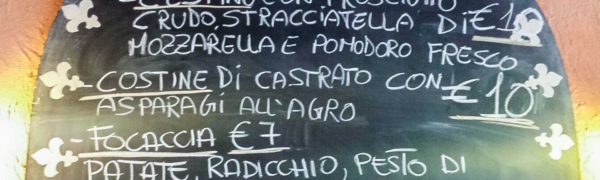 CON PROSCIUTTO
CRUDO, STRACCIATELLA DI €1
MOZZARELLA E POMODORO FRESCO
- COSTINE DI CASTRATO CON
ASPARAGI ALL'AGRO € 10
- FOCACCIA € 7
PATATE, RADICCHIO, PESTO DI